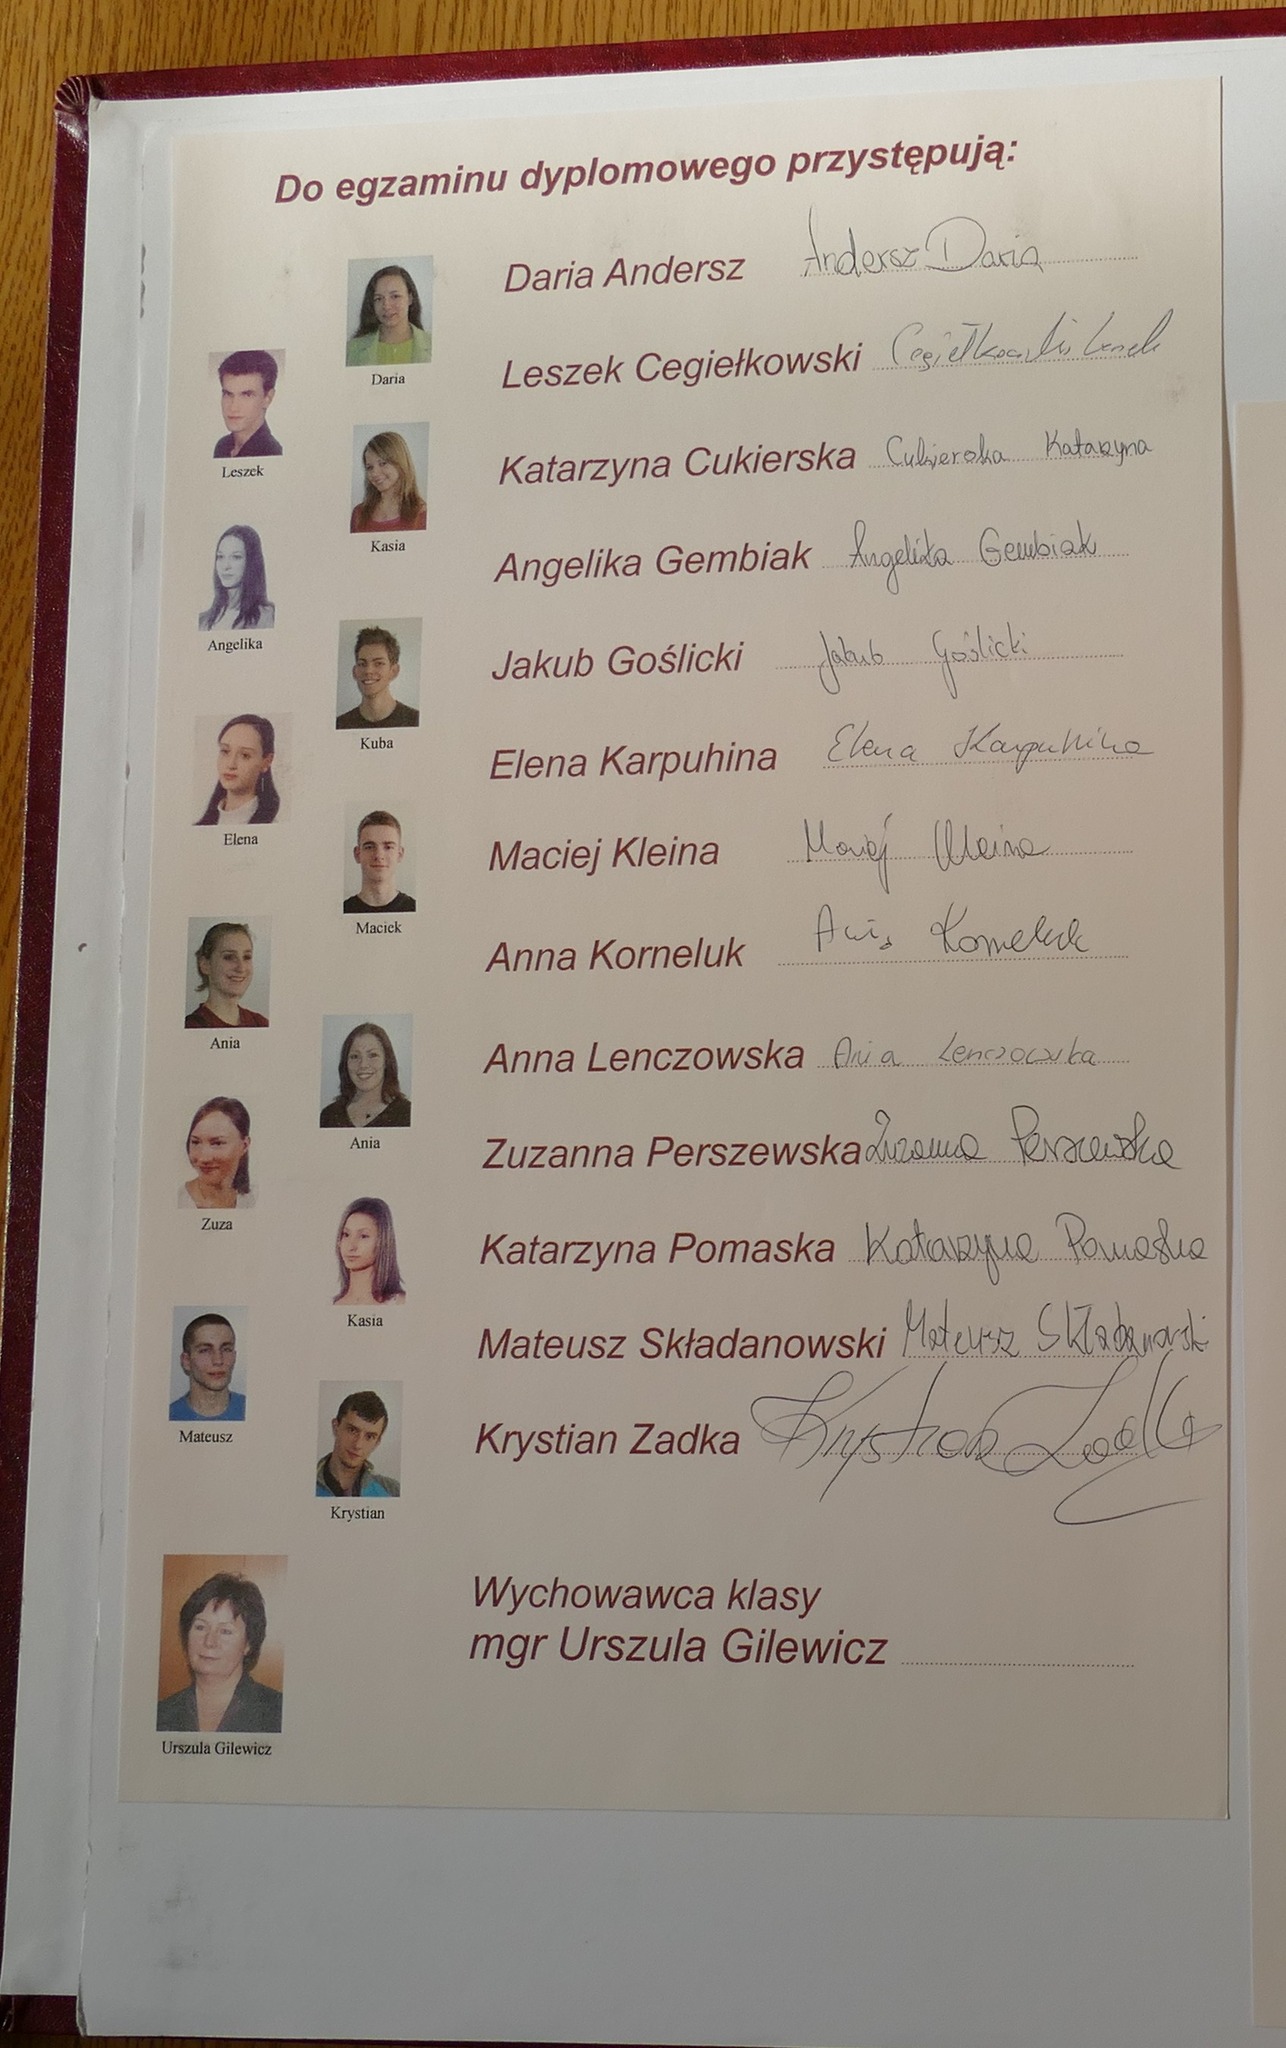 Do egzaminu dyplomowego przystępują:
Daria Andersz Andersz Daria
Daria
Leszek Cegiełkowski Cegiełkowski Leszek
Leszek
Katarzyna Cukierska Cukierska Katarzyna
Kasia
Angelika Gembiak Angelika Gembiak
Angelika
Jakub Goślicki Jakub Goślicki
Kuba
Elena Karpuhina Elena Karpuhina
Elena
Maciej Kleina Maciej Kleina
Maciek
Anna Korneluk Ania Korneluk
Ania
Anna Lenczowska Ania Lenczowska
Ania
Zuzanna Perszewska Zuzanna Perszewska
Zuza
Katarzyna Pomaska Katarzyna Pomaska
Kasia
Mateusz Składanowski Mateusz Składanowski
Mateusz
Krystian Zadka Krystian Zadka
Krystian
Wychowawca klasy
mgr Urszula Gilewicz
Urszula Gilewicz